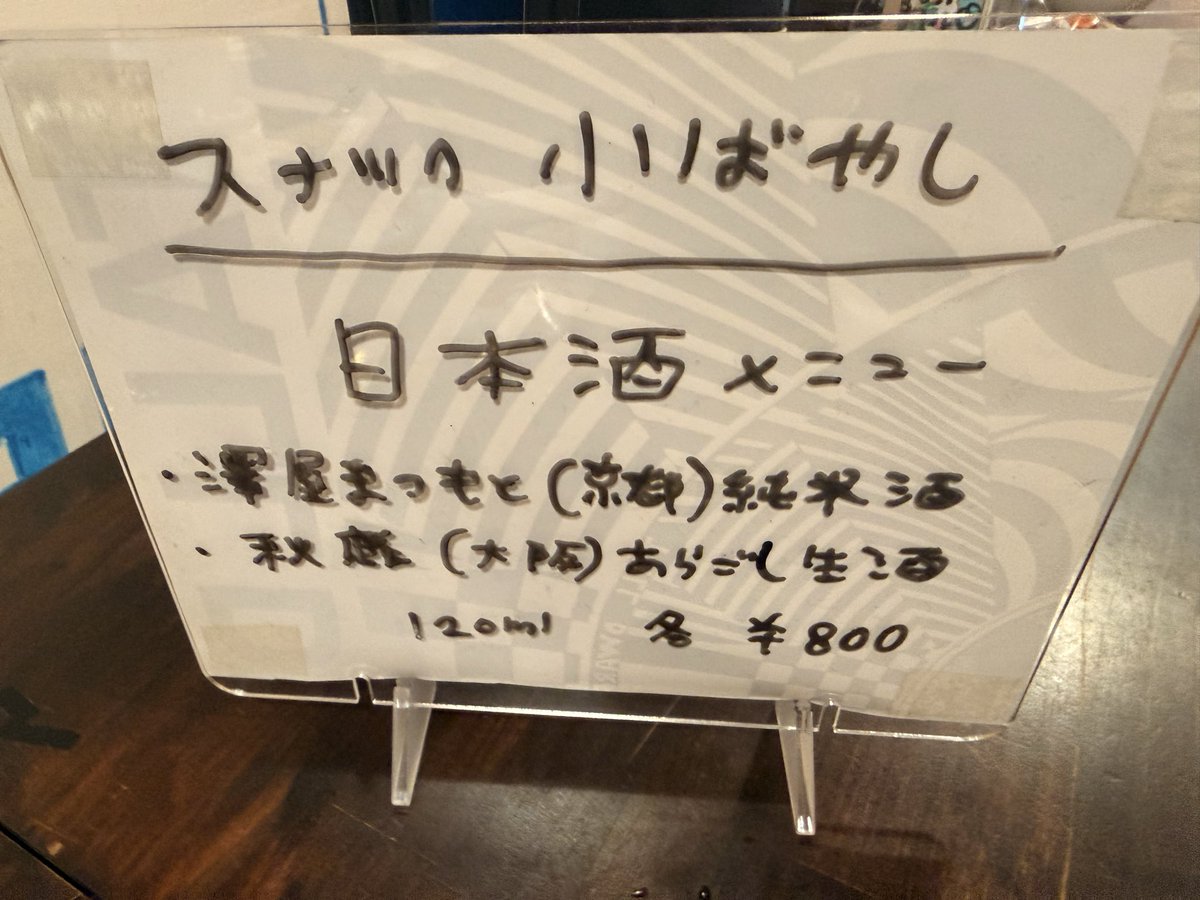 スナック 小りばやし
日本酒メニュー
・澤屋まつもと(京都)純米酒
・秋鹿(大阪)あらごし生酒
120ml 各 ¥800